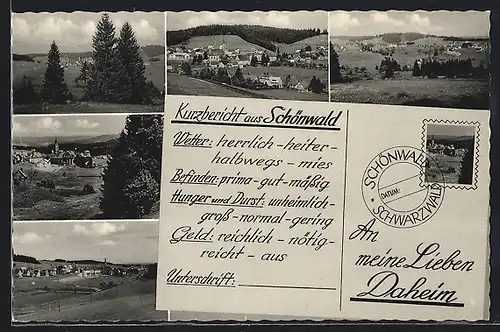 Kurzbericht aus Schönwald
Wetter: herrlich - heiter -
halbwegs - mies
Befinden: prima - gut - mäßig
Hunger und Durst: unheimlich -
groß - normal - gering
Geld: reichlich - nötig -
reicht - aus
Unterschrift:
SCHÖNWALD
DATUM:
SCHWARZWALD
An
meine Lieben
Daheim